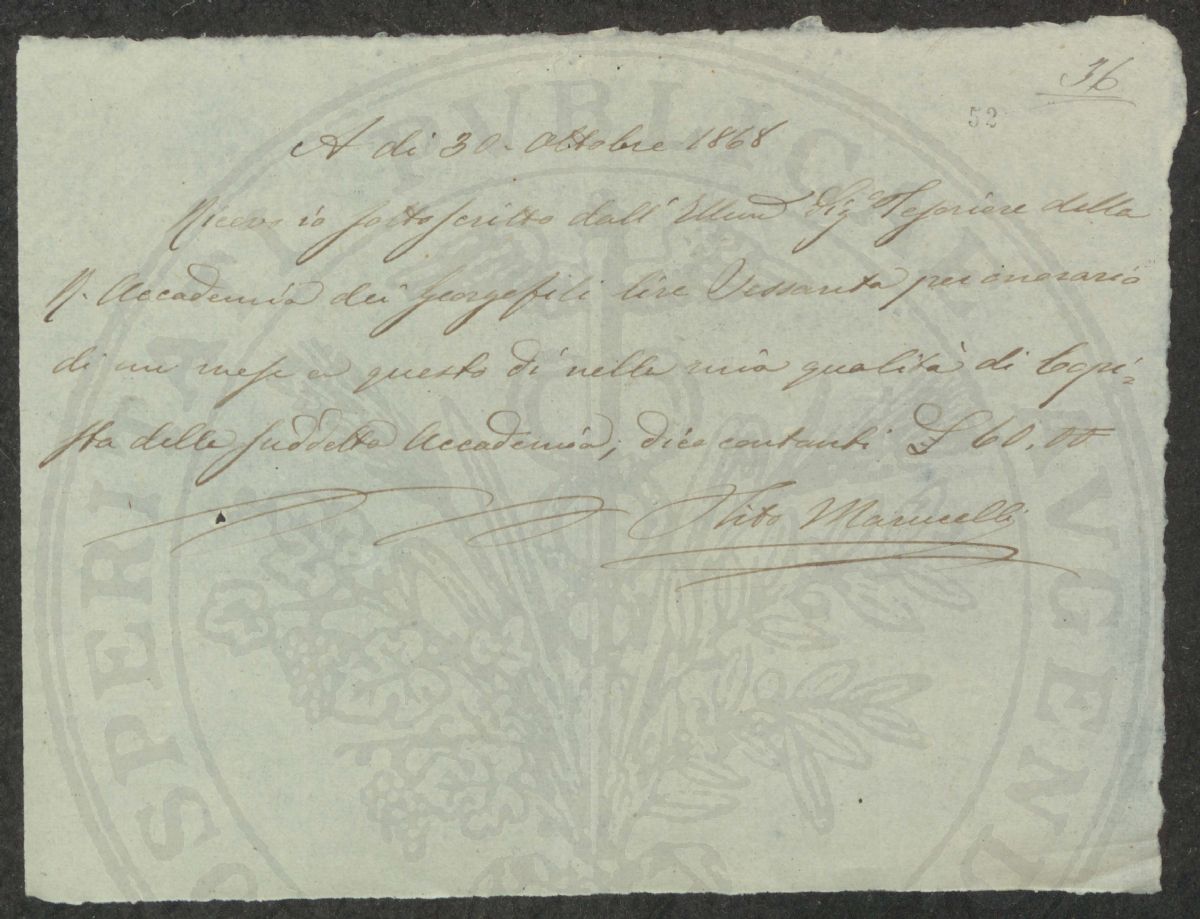 36
52
A di 30. Ottobre 1868
Ricevo io sottoscritto dall' Illmo Sigre Tesoriere della
R. Accademia dei Georgofili lire Sessanta per onorario
di un mese a questo dì nella mia qualità di Copi=
sta della suddetta Accademia, dico contanti £ 60.00
Tito Marucelli
PROSPERITATI PVBLICAE AVGENDAE